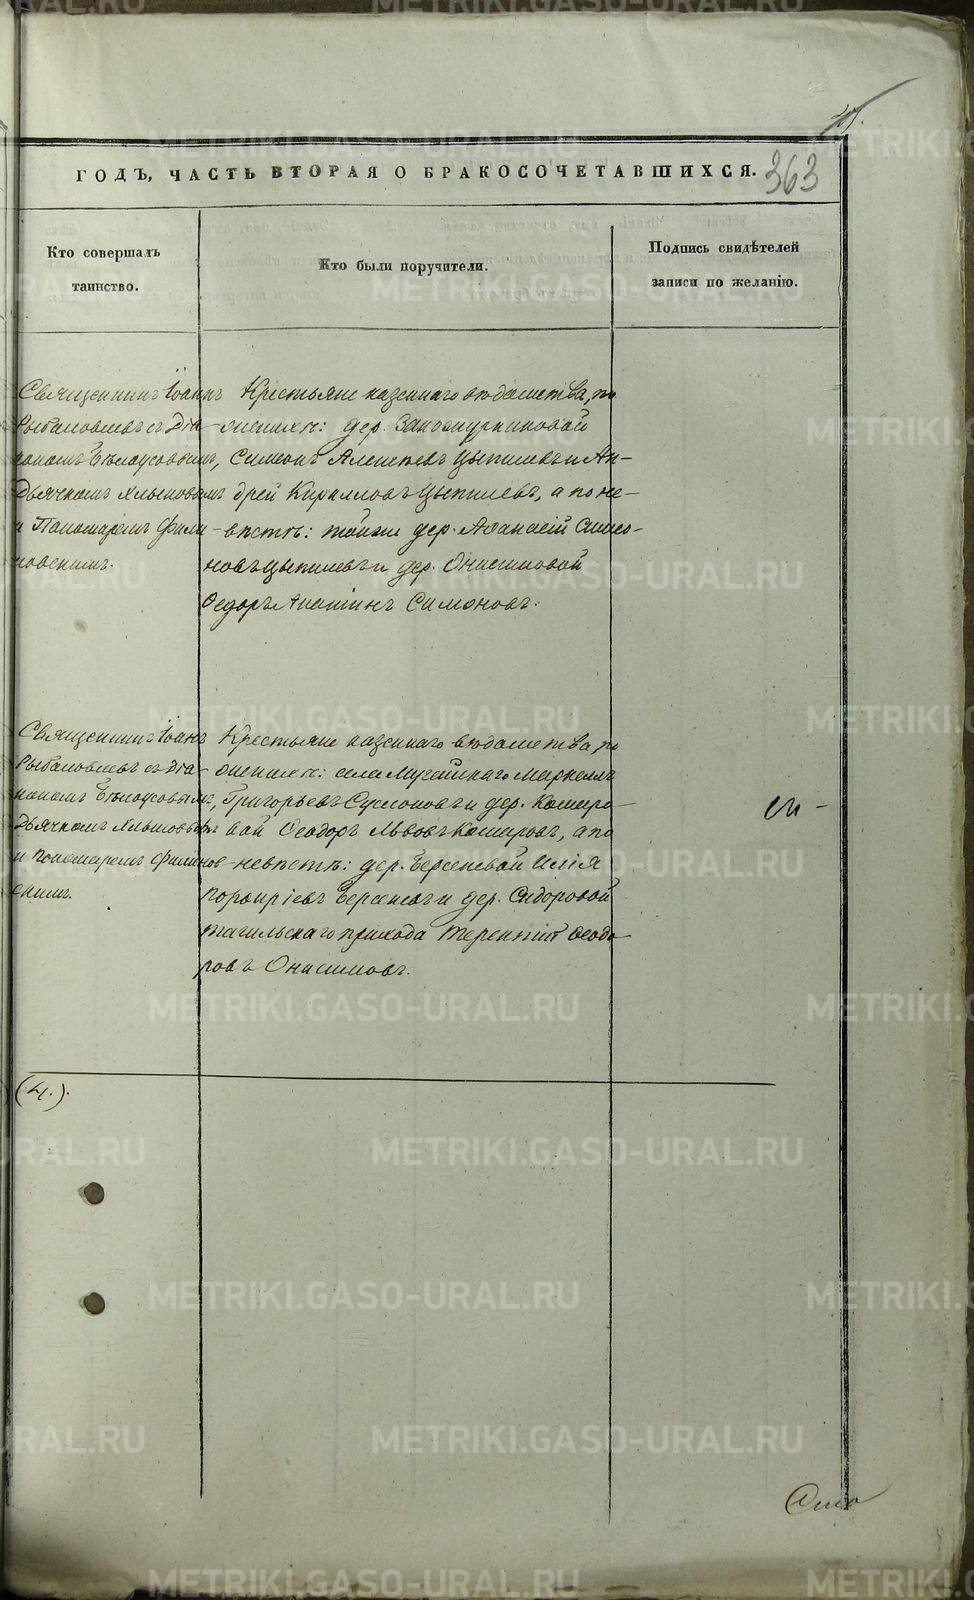 363
ГОДЪ, ЧАСТЬ ВТОРАЯ О БРАКОСОЧЕТАВШИХСЯ.
Кто совершалъ
таинство.
Кто были поручители.
Подпись свидѣтелей
записи по желанію.
Священникъ Іоаннъ
Рыболовлевъ съ Діа-
кономъ Бѣлоусовымъ,
Дьячкомъ Хлыновымъ
и Пономаремъ Фили-
новскимъ.
Крестьяне казеннаго вѣдомства, по
женихѣ: дер.
Симеонъ Алексѣевъ Цыпилевъ и Ан-
дрей Кирилловъ Цыпилевъ, а по не-
вѣстѣ: тойже дер. Аѳанасій Симео-
новъ Цыпилевъ и дер. Онисимовой
Ѳедоръ Никитинъ Симоновъ.
Священникъ Іоаннъ
Рыболовлевъ съ Діа-
кономъ Бѣлоусовымъ,
Дьячкомъ Хлыновымъ
и Пономаремъ Филинов-
скимъ.
Крестьяне казеннаго вѣдомства, по
женихѣ: села Мугайскаго Маркеллъ
Григорьевъ Суслоновъ и дер. Комаро-
вой Ѳеодоръ Львовъ Комаровъ, а по
невѣстѣ: дер. Берсеневой Илія
Порфиріевъ Берсеневъ и дер. Сидоровой
тагильскаго прихода Терентій Ѳеодо-
ровъ Онисимовъ.
METRIKI.GASO-URAL.RU